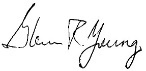 Glenn R. Young